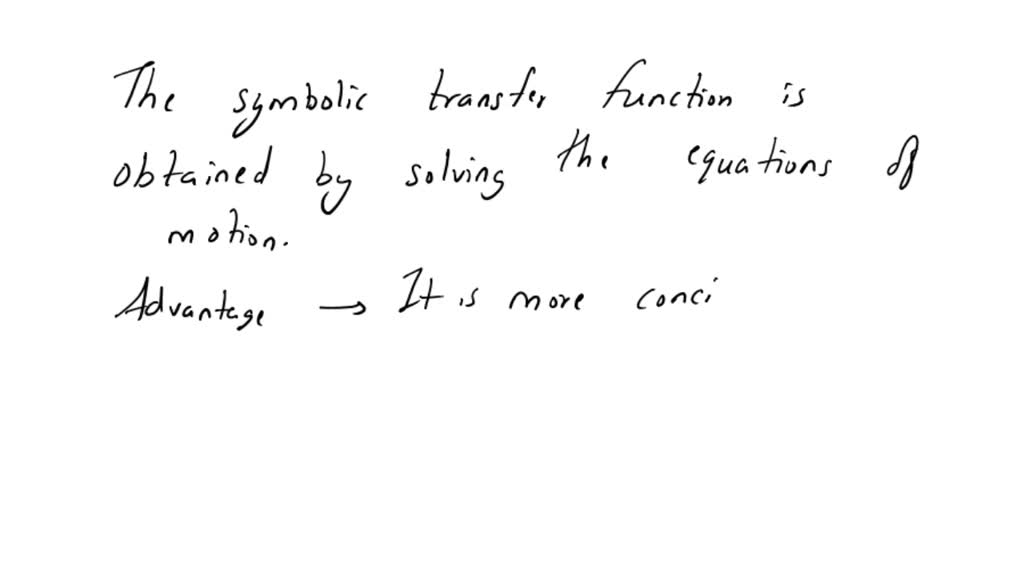 The symbolic transfer function is
obtained by solving the equations of
motion.
Advantage → It is more conci